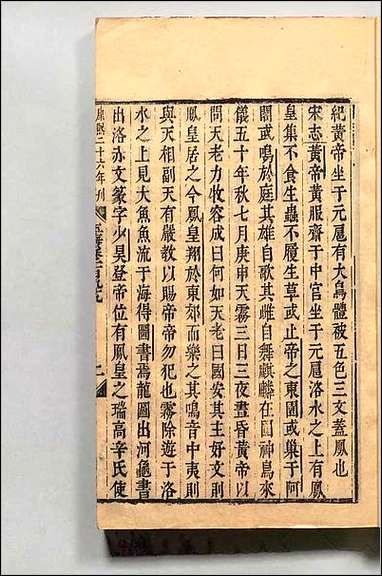 紀黃帝坐于元扈有大鳥體被五色三文蓋鳳也
宋志黃帝黃服齋于中宮坐于元扈洛水之上有鳳
皇集不食生蟲不履生草或止帝之東園或巢于阿
閣或鳴於庭其雄自歌其雌自舞麒麟在囿神鳥來
儀五十年秋七月庚申天霧三日三夜晝昏黃帝以
問天老力牧容成曰何如天老曰國安其主好文則
鳳皇居之今鳳皇翔於東郊而樂之其鳴音中夷則
與天相副天有嚴教以賜帝帝勿犯也霧除遊于洛
水之上見大魚魚流于海得圖書焉龍圖出河龜書
出洛赤文篆字少昊登帝位有鳳皇之瑞高辛氏使
二十六年刊